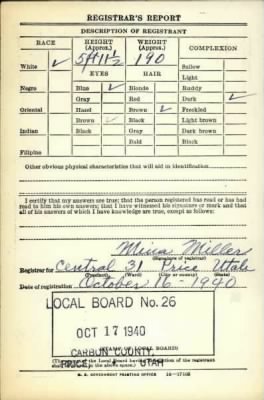 REGISTRAR'S REPORT
DESCRIPTION OF REGISTRANT
RACE HEIGHT (Approx.) WEIGHT (Approx.) COMPLEXION
White ✓ 5ft 11½ 190 Sallow
EYES HAIR Light
Negro Blue ✓ Blonde Ruddy
Gray Red Dark ✓
Oriental Hazel Brown ✓ Freckled
Brown ✓ Black Light brown
Indian Black Gray Dark brown
Bald Black
Filipino
Other obvious physical characteristics that will aid in identification
I certify that my answers are true; that the person registered has read or has had
read to him his own answers; that I have witnessed his signature or mark and that
all of his answers of which I have knowledge are true, except as follows:
Mina Miller
(Signature of registrar)
Registrar for Central 31 Price Utah
(Precinct) (Ward) (City or county) (State)
Date of registration October 16 - 1940
LOCAL BOARD No. 26
OCT 17 1940
(STAMP OF LOCAL BOARD)
CARBON COUNTY,
PRICE, UTAH
U. S. GOVERNMENT PRINTING OFFICE 16-17105